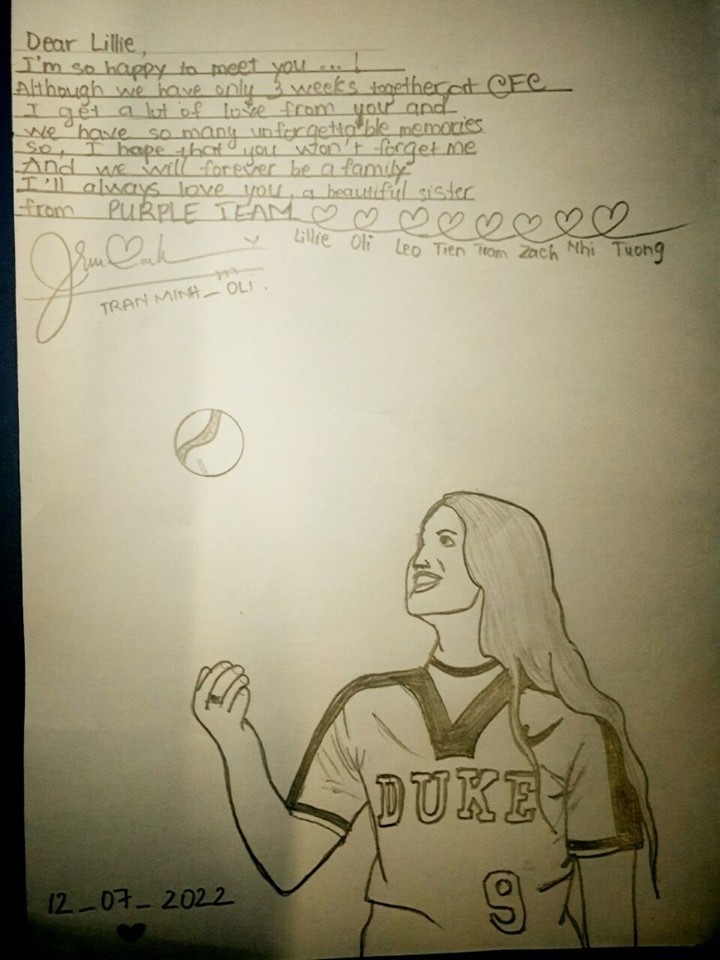 Dear Lillie,
I'm so happy to meet you ... !
Although we have only 3 weeks together at CFC
I get a lot of love from you and
we have so many unforgettable memories
so, I hope that you won't forget me
And we will forever be a family
I'll always love you, a beautiful sister
from PURPLE TEAM ♡ ♡ ♡ ♡ ♡ ♡ ♡ ♡
Lillie Oli Leo Tien Tram Zach Nhi Tuong
TRAN MINH _ OLI .
DUKE
9
12 _ 07 _ 2022